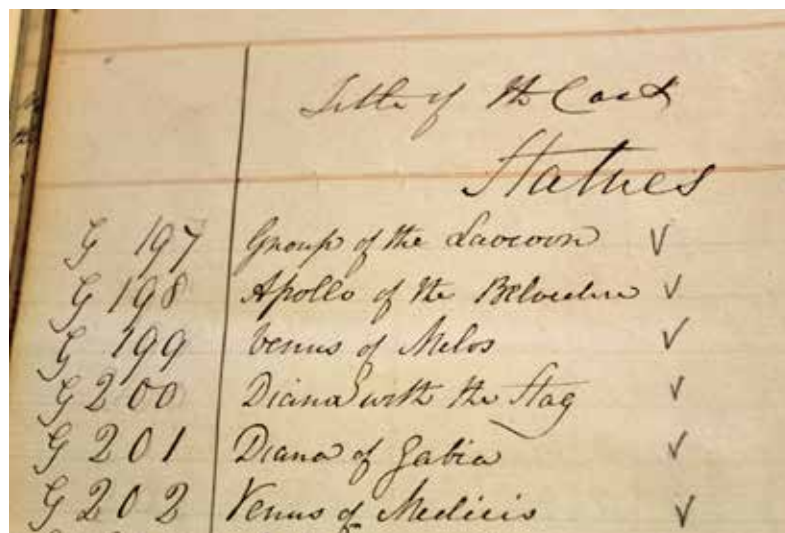 Title of the Cast
Statues
G 197 Group of the Laocoon √
G 198 Apollo of the Belvedere √
G 199 Venus of Melos √
G 200 Diana with the Stag √
G 201 Diana of Gabia √
G 202 Venus of Medicis √